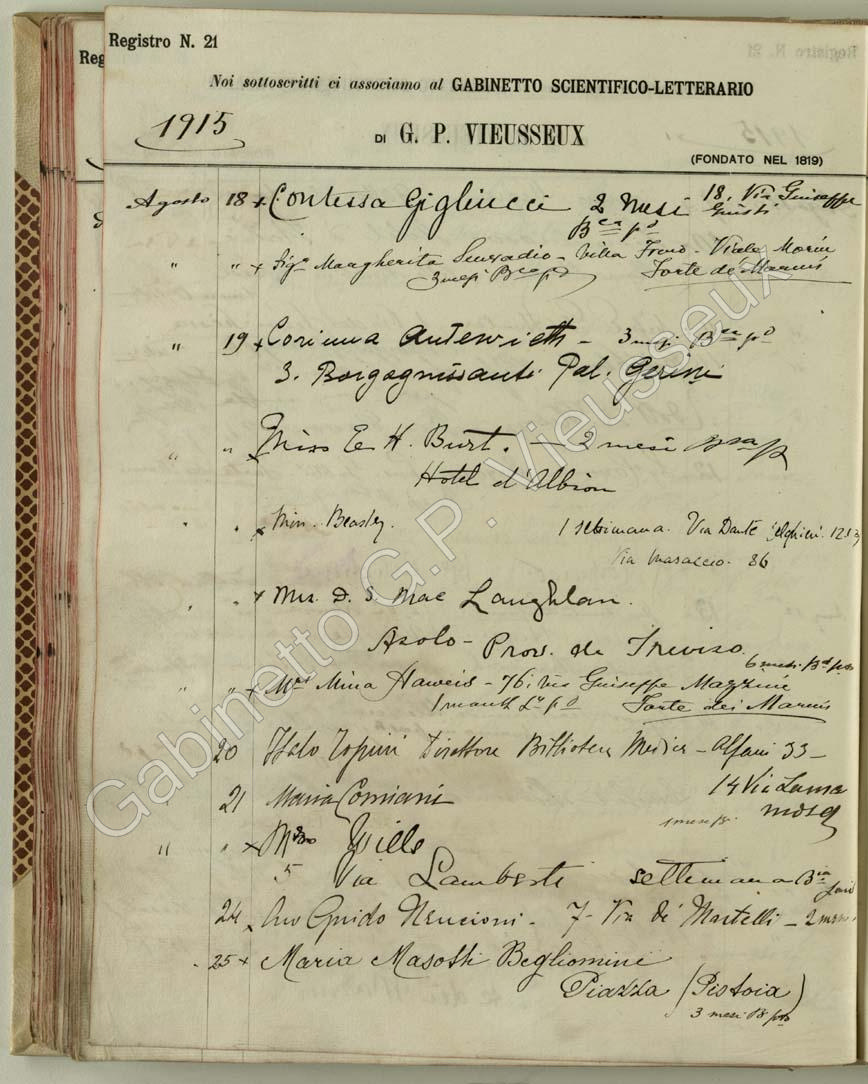 Registro N. 21
Reg
Noi sottoscritti ci associamo al GABINETTO SCIENTIFICO-LETTERARIO
1915
DI G. P. VIEUSSEUX
(FONDATO NEL 1819)
Agosto 18 x Contessa Gigliucci 2 mesi 18. Via Giuseppe
Giusti
" " x Sigra Margherita - Villa - Viale Morin
3 mesi Forte dei Marmi
" 19 x Corinna - 3 mesi
3. Borgognissanti Pal. Gerini
" " x Miss E H. Burt. - 2 mesi
Hotel d'Albion
" " x Beasley. 1 settimana. Via Dante
Via Masaccio. 86
" " x Mrs. D. S. Mac Laughlan.
Asolo - Prov. de Treviso.
6 mesi
" " x Mrs Mina Haweis - 76, via Giuseppe Mazzini
1 month Forte dei Marmi
20 Italo Direttore Biblioteca Medica - Alfani 33 -
21 Maria Comiani 14 Via Lama
1 mese
" " x Wills
5 Via Lamberti settimana
24 x Guido Nencioni - 7 - Via de' Martelli - 2 mesi
25 x Maria Masotti Begliomini
Piazza (Pistoia)
3 mesi
Gabinetto G.P. Vieusseux